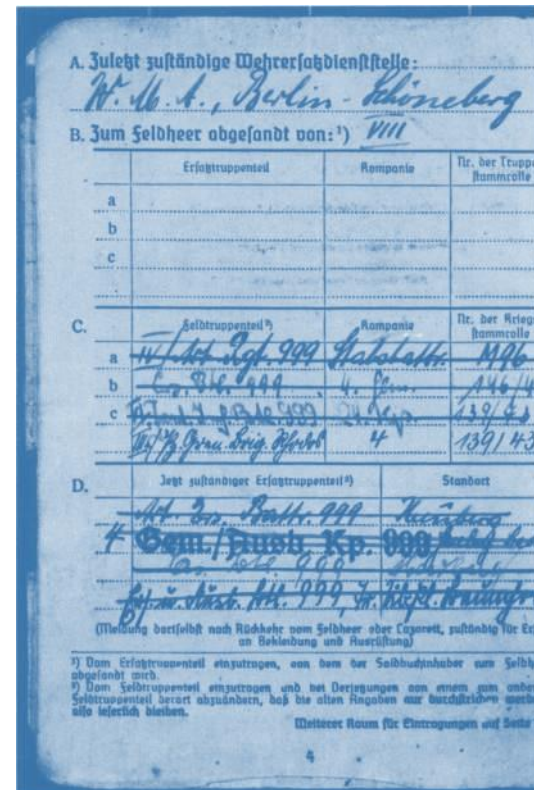 A. Zuletzt zuständige Wehrersatzdienststelle:
W. M. A., Berlin-Schöneberg
B. Zum Feldheer abgesandt von:¹) VIII
Ersatztruppenteil Kompanie Nr. der Truppe
stammrolle
a
b
c
C. Feldtruppenteil²) Kompanie Nr. der Kriegs
stammrolle
a Rgt. 999 Stabsbattr. M96
b Ers. Btl. 999 4. 146/4
c 999 139/43
III./ Gren. Brig. Rhodos 4 139/43
D. Jetzt zuständiger Ersatztruppenteil²) Standort
Art. Ers. Battr. 999
4 Gem./Ausb. Kp. 999
999
Ers. u. Ausb. Btl. 999,
(Meldung dortselbst nach Rückkehr vom Feldheer oder Lazarett, zuständig für Er
an Bekleidung und Ausrüstung)
¹) Vom Ersatztruppenteil einzutragen, von dem der Soldbuchinhaber zum Feldh
abgesandt wird.
²) Vom Feldtruppenteil einzutragen und bei Versetzungen von einem zum ander
Feldtruppenteil derart abzuändern, daß die alten Angaben nur durchstrichen werde
also leserlich bleiben.
Weiterer Raum für Eintragungen auf Seite
4